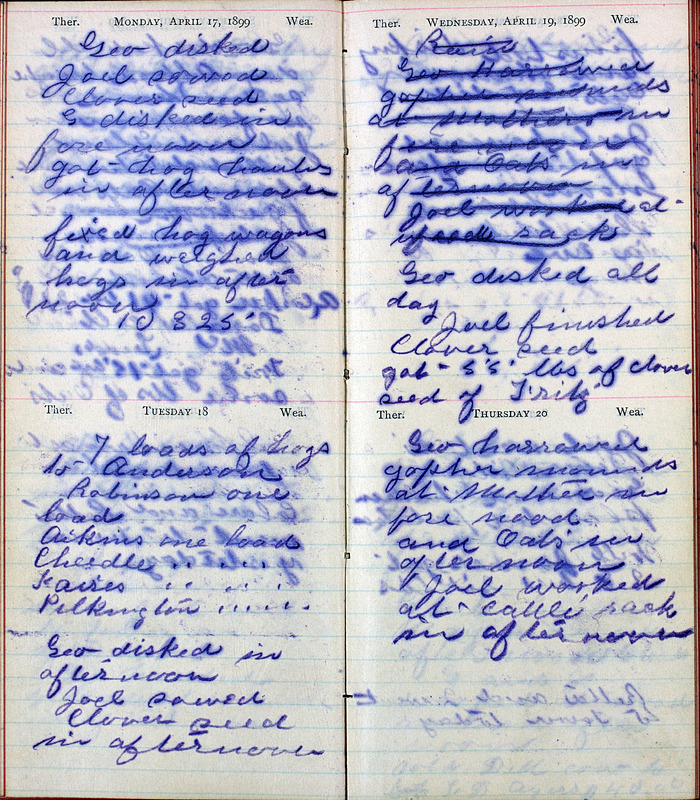 Ther. MONDAY, APRIL 17, 1899 Wea.
Geo disked
Joel sowed
Clover seed
G disked in
fore noon
got hog hauls
in after noon
fixed hog wagons
and weighed
hogs in after
noon
10 825
Ther. TUESDAY 18 Wea.
7 loads of hogs
to Anderson
Robinson one
load
Aikins one load
Cheedle " " "
Kaires " " "
Pilkington " " "
Geo disked in
afternoon
Joel sowed
Clover seed
in afternoon
Ther. WEDNESDAY, APRIL 19, 1899 Wea.
Rain
Geo Harrowed
gopher mounds
at Mothers in
fore noon
and Oats in
afternoon
Joel worked at
feed rack
Geo disked all
day
Joel finished
Clover seed
got 55 lbs of clover
seed of Fritz
Ther. THURSDAY 20 Wea.
Geo harrowed
gopher mounds
at Mother in
fore nood
and Oats in
afternoon
Joel worked
at cattle rack
in after noon